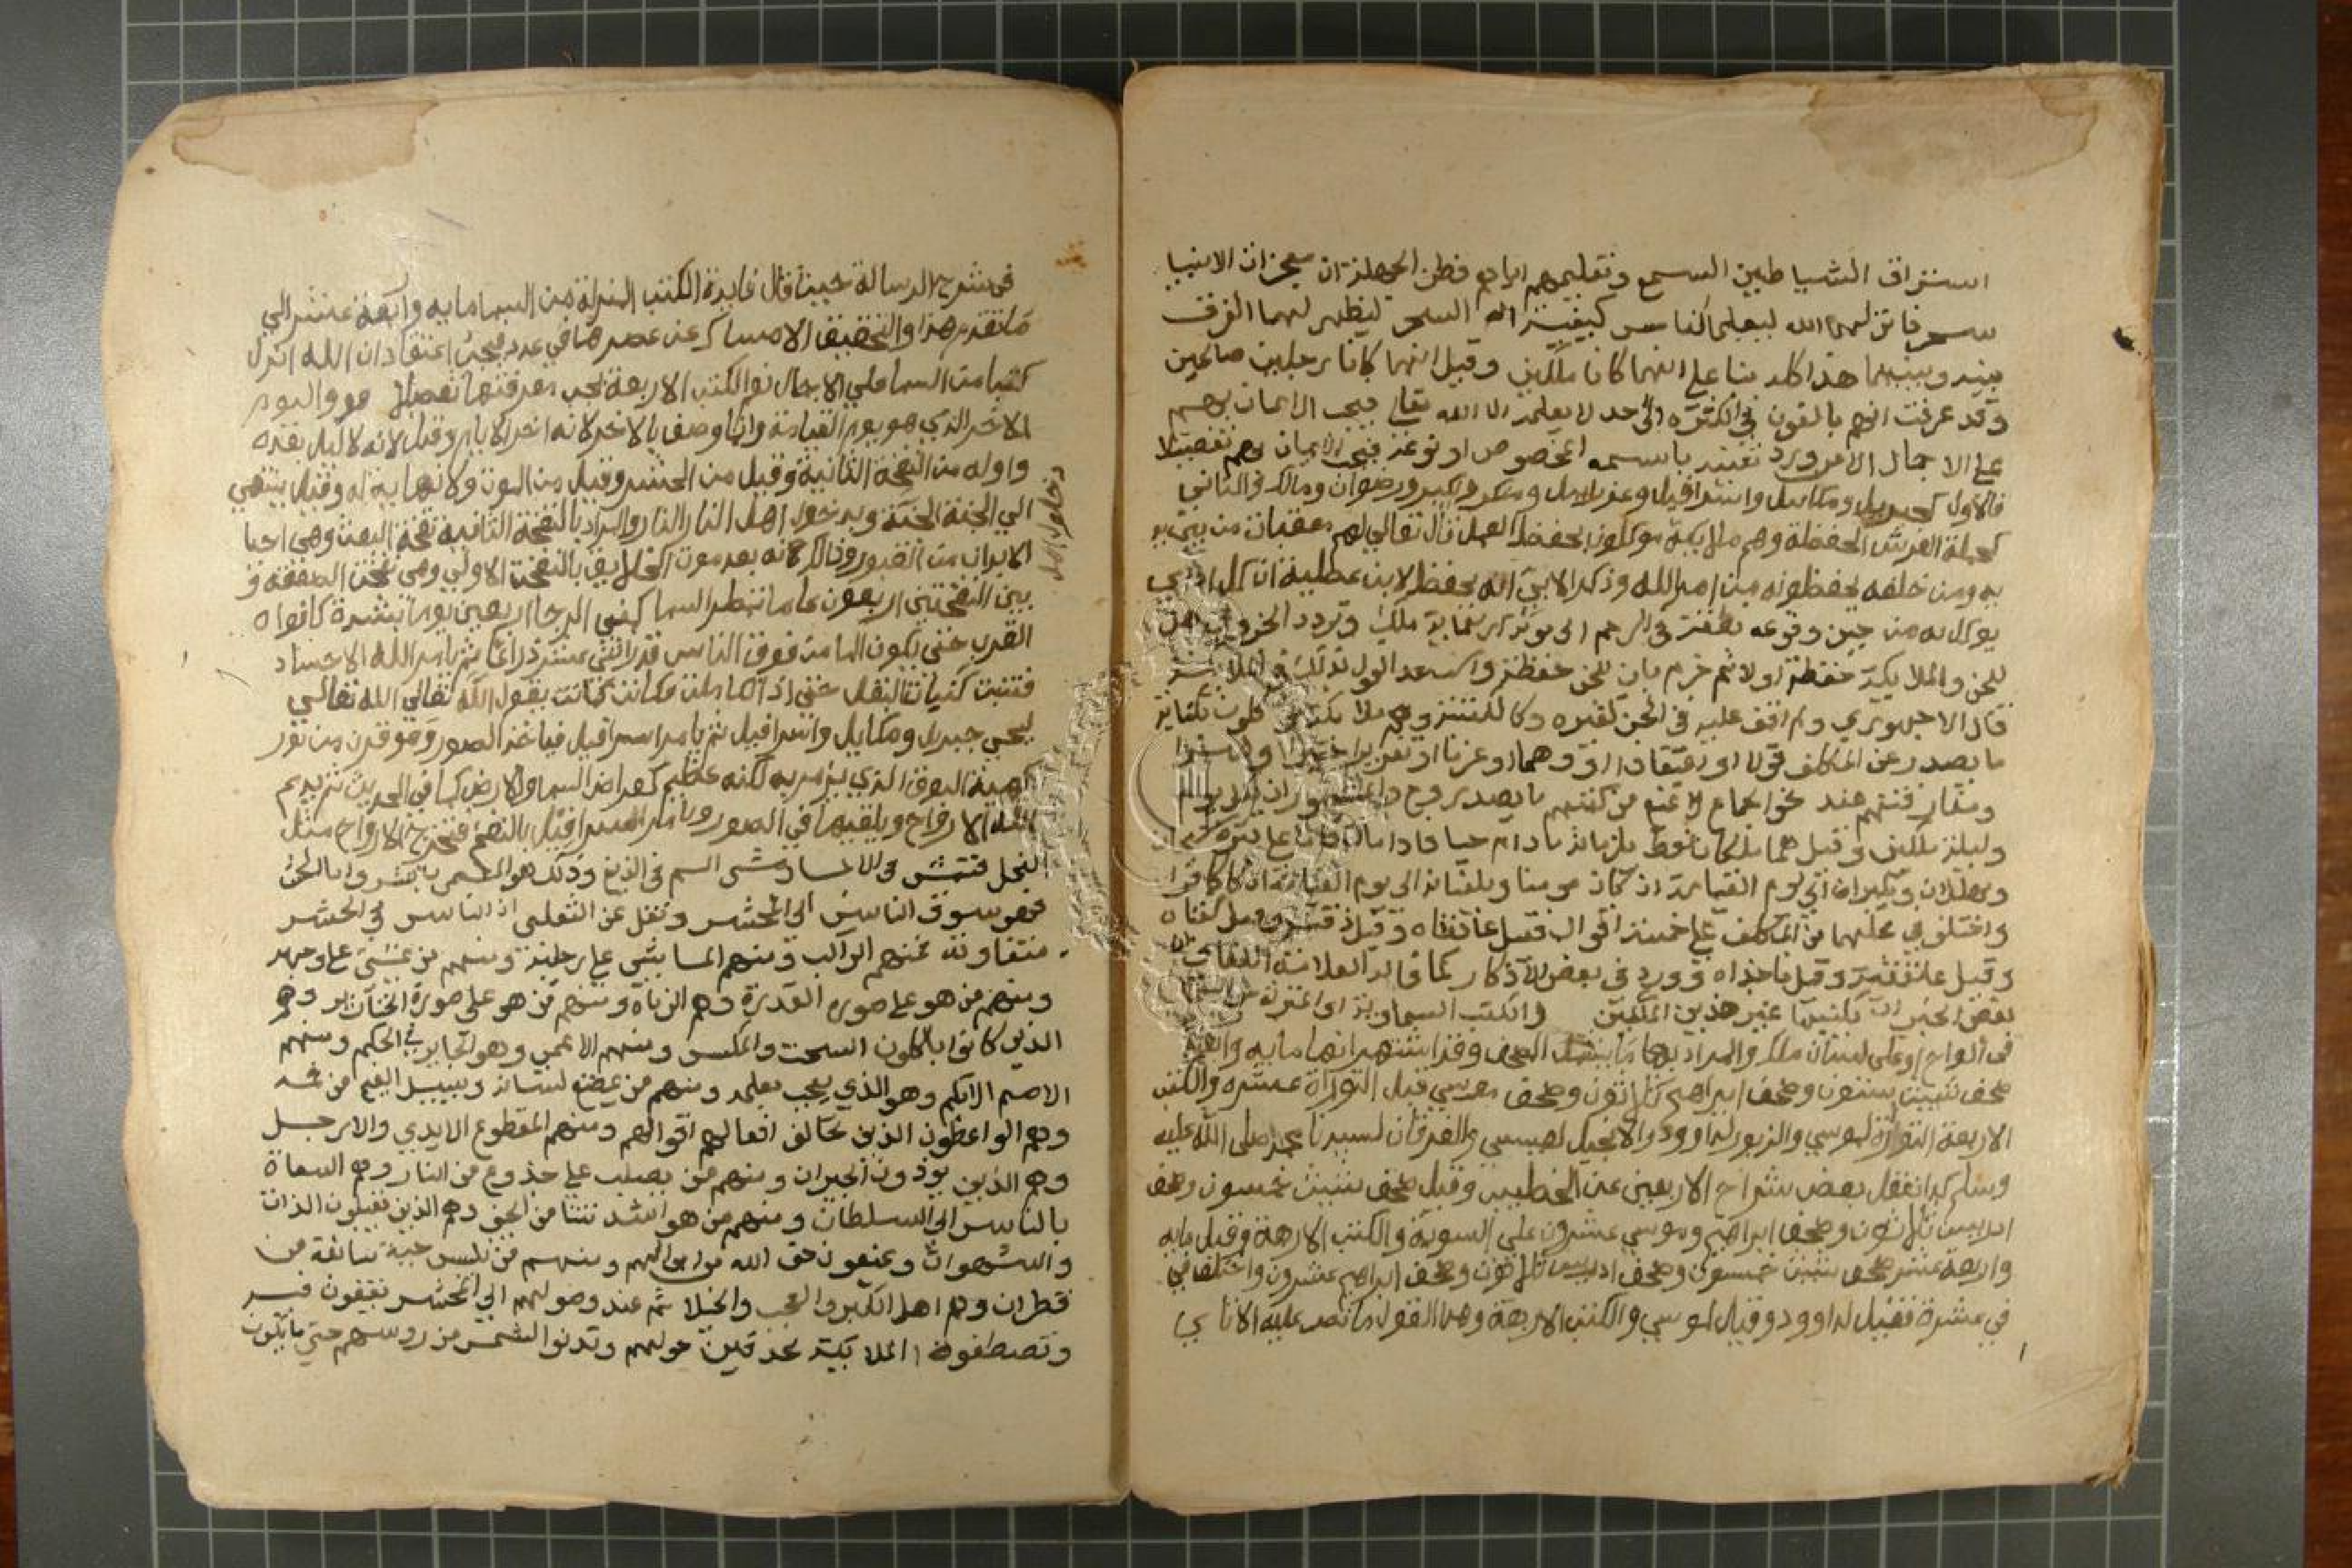 استراق الشياطين السمع وتعليمهم اياهم فظن الجهلة ان معجزات الانبيا
سحر فانزلهما الله ليعلما الناس كيفية السحر ليظهر لهما الفرق
بينه وبينهما هذا كله بنا على انهما كانا ملكين وقيل انهما كانا رجلين صالحين
وقد عرفت انهم بالغون في الكثرة الى حد لا يعلمه الا الله تعالى فيجب الايمان بهم
على الاجمال الا من ورد تعينه باسمه المخصوص او نوعه فيجب الايمان بهم تفصيلا
فالاول كجبريل وميكاييل واسرافيل وعزراييل ومنكر ونكير ورضوان ومالك والثاني
كحملة العرش والحفظة وهم ملايكة موكلون بحفظ العبد قال تعالي لهم معقبات من بين يد
يه ومن خلفه يحفظونه من امر الله وذكر الابي انه يحفظ لابن عطية ان كل ادمي
يوكل به من حين وقوعه نطفة في الرحم الى موته اربعماية ملك وتردد الجزولي هل
للجن والملايكة حفظة اولا ثم جزم بان للجن حفظة واستبعد القول بذلك في الملايكة
قال الاجهوري ولم اقف عليه في الجن لغيره وكالكتبة وهم ملايكة يكتبون
ما يصدر عن المكلف قولا او اعتقادا او هما او عزما او تقريرا خيرا او شرا
ومفارقتهم عند نحو الجماع لا تمنع من كتبهم ما يصدر
وليلة ملكين وقيل هما ملكان فقط يلزمانه ما دام حيا فاذا مات قاما على قبره
ويهللان ويكبران الي يوم القيامة ان كان مومنا ويلعنانه الى يوم القيامة ان كان كافرا
واختلف في محلهما من المكلف على خمسة اقوال فقيل عاتقاه وقيل ذقنه وقيل شفتاه
وقيل عنفقته وقيل ناجذاه وورد في بعض الاذكار كما قاله العلامة اللقاني
بعض الخبر ان يكتبها غير هذين الملكين والكتب السماوية اى المنزلة من السما
في الواح او على لسان ملك والمراد بها ما يشمل الصحف وقد اشتهر انها ماية واربعة
صحف شيث ستون وصحف ابراهيم ثلاثون وصحف موسي قبل التوراة عشرة والكتب
الاربعة التوراة لموسي والزبور لداوود والانجيل لعيسي والفرقان لسيدنا محمد صلى الله عليه
وسلم كذا نقل بعض شراح الاربعين عن الخطيب وقيل صحف شيث خمسون وصحف
ادريس ثلاثون وصحف ابراهيم وموسي عشرون على السوية والكتب الاربعة وقيل ماية
واربعة عشر صحف شيث خمسون وصحف ادريس ثلاثون وصحف ابراهيم عشرون واختلف في
في عشرة فقيل لداوود وقيل لموسي والكتب الاربعة وهذا القول ما نص عليه الاتاي
في شرح الرسالة حيث قال فايدة الكتب المنزلة من السما ماية واربعة عشر الي
ما تقدم هذا والتحقيق الامساك عن حصرها في عدد فيجب اعتقاد ان الله انزل
كتبا من السما على الاجمال نعم الكتب الاربعة يجب معرفتها تفصيلا واليوم
الاخر الذي هو يوم القيامة وانما وصف بالاخر لانه اخر الايام وقيل لانه لا ليل بعده
واوله من النفخة الثانية وقيل من الحشر وقيل من الموت ولا نهاية له وقيل ينتهي
الي الجنة الجنة ويدخول اهل النار النار والمراد بالنفخة الثانية نفخة البعث وهي احيا
دخول اهل
الابدان من القبور وذلك انه بعد موت الخلايق بالنفخة الاولي وهي نفخة الصعقة و
بين النفختين اربعون عاما تمطر السما كمني الرجال اربعين يوما بشدة كافواه
القرب حتي يكون الما من فوق الناس قدر اثني عشر ذراعا ثم يامر الله الاجساد
فتنبت كنبات البقل حتي اذا تكاملت وكانت كما كانت يقول الله تعالي
ليحي جبريل وميكاييل واسرافيل ثم يامر اسرافيل فياخذ الصور وهو قرن من نور
كهيئة البوق الذي يزمر به لكنه عظيم كعرض السما والارض كما في الحديث ثم يدعو
الله الارواح ويلقيها في الصور ويامر اسرافيل بالنفخ فتخرج الارواح مثل
النحل فتمشى في الاجساد مشى السم في اللديغ وذلك هو المسمى بالنشر واما الحشر
فهو سوق الناس الى المحشر ونقل عن الثعلبى ان الناس في الحشر
متفاوتة فمنهم الراكب ومنهم الماشي على رجليه ومنهم من يمشي على وجهه
ومنهم من هو على صورة القردة وهم الزناة ومنهم من هو على صورة الخنازير وهم
الذين كانوا ياكلون السحت والمكس ومنهم الاعمي وهو الجاير في الحكم ومنهم
الاصم الابكم وهو الذي يعجب بعلمه ومنهم من يمضغ لسانه ويسيل القيح من فمه
وهم الواعظون الذين تخالف افعالهم اقوالهم ومنهم المقطوع الايدي والارجل
وهم الذين يوذون الجيران ومنهم من يصلب على جذوع من النار وهم السعاة
بالناس الى السلطان ومنهم من هو اشد نتنا من الجيف وهم الذين يقبلون اللذات
والشهوات ويمنعون حق الله من اموالهم ومنهم من يلبس جبة سابغة من
قطران وهم اهل الكبر والعجب والخيلا ثم عند وصولهم الي المحشر يقفون فيه
وتصطفون الملايكة محدقين حولهم وتدنوا الشمس من روسهم حتي ما يكون